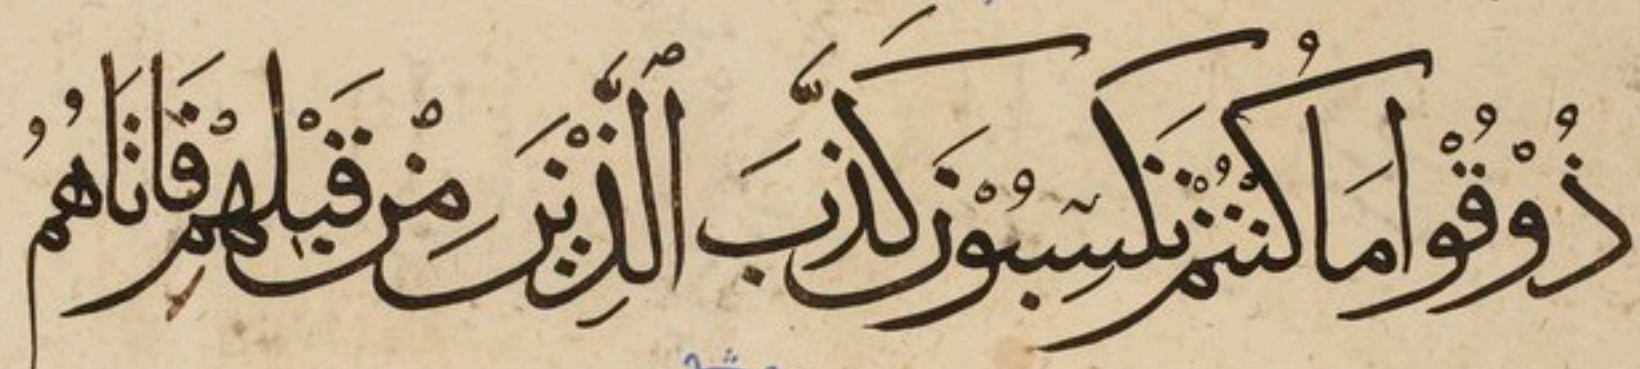 ذُوْقُوْا مَا كُنْتُمْ تَكْسِبُوْنَ كَذَّبَ ٱلَّذِيْنَ مِنْ قَبْلِهِمْ فَاَتَاهُمُ